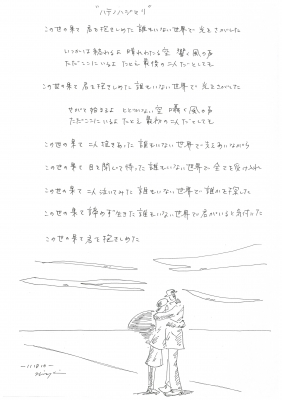 "ハテノハジマリ"
この世の果て 君を抱きしめた 誰もいない世界で 光をさがした
いつかは終わるよ 晴れわたる空 響く風の声
ただここにいるよ たとえ最後の二人だとしても
この世の果て 君を抱きしめた 誰もいない世界で 光をさがした
やがて始まるよ とどかない空 囁く風の声
ただここにいるよ たとえ最初の二人だとしても
この世の果て 二人抱きあった 誰もいない世界で 支えあいながら
この世の果て 目を閉じて待った 誰もいない世界で 全てを受け入れ
この世の果て 二人泣いてみた 誰もいない世界で 誰かを探した
この世の果て 諦めず生きた 誰もいない世界で 君がいると気付いた
この世の果て 君を抱きしめた